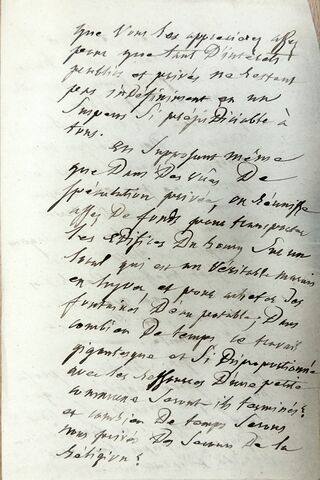 que vous les apprécierez assez
pour que tant d'intérêts
publics et privés ne restent
pas indéfiniment en un
suspens si préjudiciable à
tous.
En supposant même
que dans des vues de
spéculation privée, on réunisse
assez de fonds pour transporter
les édifices du bourg sur un
local qui est un véritable marais
en hyver et pour acheter des
fontaines d'eau potable; dans
combien de temps ce travail
gigantesque et si disproportionné
avec les ressources d'une petite
commune seront ils terminés?
et combien de temps serons
nous privés des secours de la
Réligion?